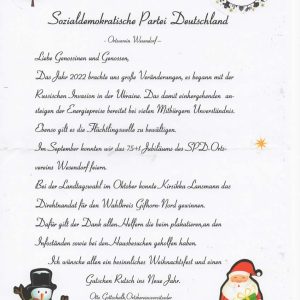 Sozialdemokratische Partei Deutschland
- Ortsverein Wesendorf -
Liebe Genossinen und Genossen,
Das Jahr 2022 brachte uns große Veränderungen, es begann mit der
Russischen Invasion in der Ukraine. Das damit einhergehenden an-
steigen der Energiepreise bereitet bei vielen Mitbürgern Unverständnis.
Ebenso gilt es die Flüchtlingswelle zu bewältigen.
Im September konnten wir das 75+1 Jubiläums des SPD.Orts-
vereins Wesendorf feiern.
Bei der Landtagswahl im Oktober konnte Kirsikka Lansmann das
Direktmandat für den Wahlkreis Gifhorn-Nord gewinnen.
Dafür gilt der Dank allen Helfern die beim plakatieren, an den
Infoständen sowie bei den Hausbesuchen geholfen haben.
Ich wünsche allen ein besinnliches Weihnachtsfest und einen
Gutschen Rutsch ins Neue Jahr.
Otto Gottschalk, Ortsvereinsvorsitzender